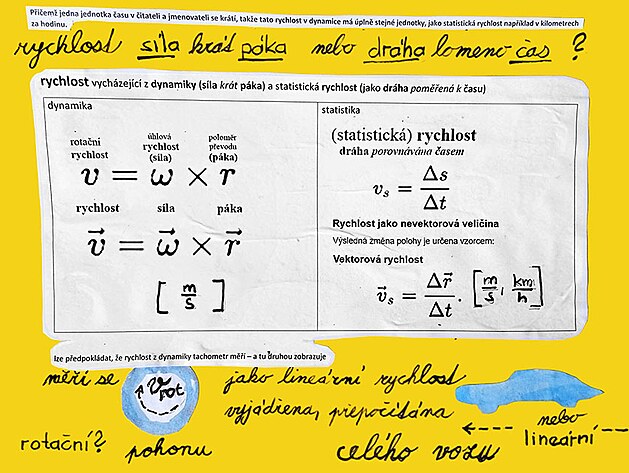 Přičemž jedna jednotka času v čitateli a jmenovateli se krátí, takže tato rychlost v dynamice má úplně stejné jednotky, jako statistická rychlost například v kilometrech
za hodinu.
rychlost síla krát páka nebo dráha lomeno čas ?
rychlost vycházející z dynamiky (síla krót páka) a statistická rychlost (jako dráha poměřeně k času)
dynamika
statistika
rotační rychlost
úhlová rychlost (síla)
poloměr převodu (páka)
v = ω × r
rychlost síla páka
v⃗ = ω⃗ × r⃗
[ m/s ]
(statistická) rychlost
dráha porovnávána časem
vₛ = Δs/Δt
Rychlost jako nevektorová veličina
Výsledná změna polohy je určena vzorcem:
Vektorová rychlost
v⃗ₛ = Δr⃗/Δt. [m/s, km/h]
lze předpokládat, že rychlost z dynamiky tachometr měří – a tu druhou zobrazuje
měří se
v rot
rotační? pohonu
jako lineární rychlost
vyjádřena, přepočítána
celého vozu
nebo
lineární